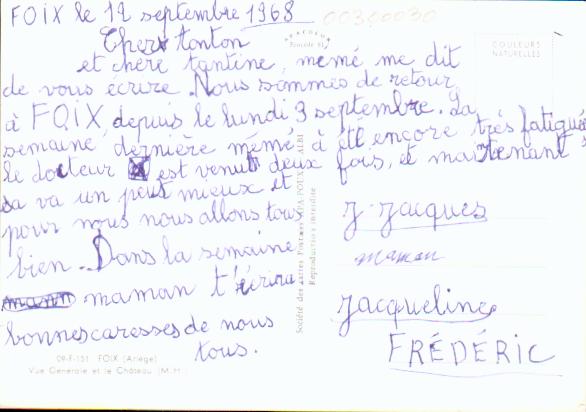 FOIX le 12 septembre 1968
00300030
Cherx tonton
et chère tantine, mémé me dit
de vous écrire. Nous sommes de retour
à FOIX depuis le lundi 3 septembre. La
semaine dernière mémé à été encore très fatiguée
le docteur est venut deux fois, et maintenant
sa va un peut mieux et
pour nous nous allons tous
bien. Dans la semaine
maman t'écrira
bonnes caresses de nous
tous.
J. Jacques
maman
Jacqueline
FRÉDÉRIC
COULEURS
NATURELLES
Société des Cartes Postales APA-POUX ALBI
Reproduction interdite
09-F-151 FOIX (Ariège)
Vue Générale et le Château (M.H.)